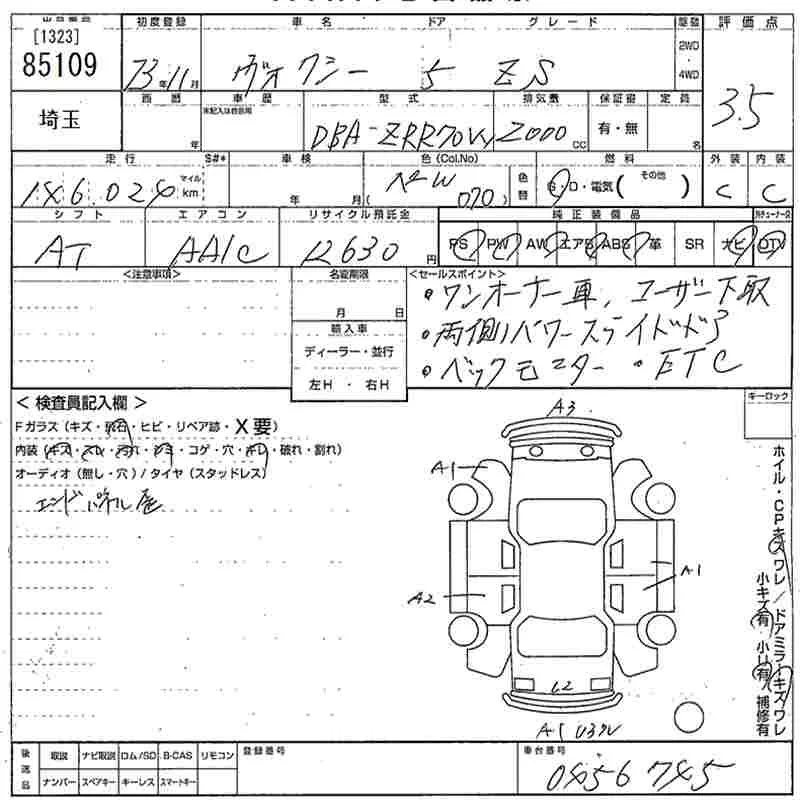 [1323]
85109
初度登録
車名
ドア
グレード
駆動
評価点
13年11月
ヴォクシー
5
ZS
2WD
・
4WD
3.5
埼玉
画歴
年
車歴
未記入は自家用
型式
DBA-ZRR70W
排気量
2000 CC
保証書
有・無
定員
名
走行
マイル
km
S#*
車検
年 月
色(Col.No)
パールW
(070)
色替
燃料
G・D・電気( その他 )
外装
C
内装
C
シフト
AT
エアコン
AAC
リサイクル預託金
12630円
純正装備品
PS PW AW エアB ABS 革 SR ナビ DTV
<注意事項>
名変期限
月 日
輸入車
ディーラー・並行
左H ・ 右H
<セールスポイント>
・ワンオーナー車、ユーザー下取
・両側パワースライドドア
・バックモニター ・ETC
<検査員記入欄>
キーロック
Fガラス(キズ・飛石・ヒビ・リペア跡・X要)
内装(キズ・スレ・汚れ・シミ・コゲ・穴・ヤレ・破れ・割れ)
オーディオ(無し・穴)/タイヤ(スタッドレス)
エンドパネル歪
A3
A1
A2
A1
L2
A1 U3
ホイル・CPキズワレ/ドアミラーキズワレ
小キズ有 小U有 補修有
後送品
取説 ナビ取説 ロム/SD B-CAS リモコン
ナンバー スペアキー キーレス スマートキー
登録番号
車台番号
0456745